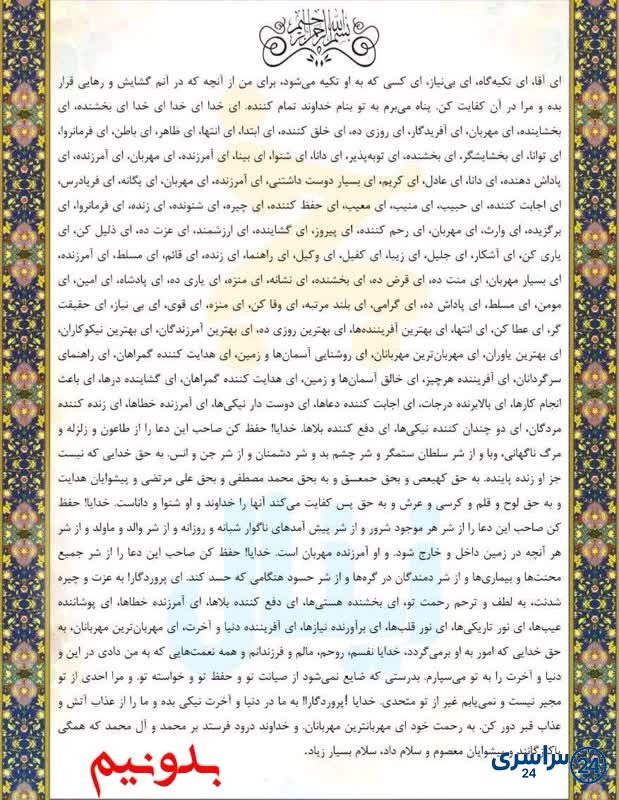 بسم الله الرحمن الرحیم
ای آقا، ای تکیه‌گاه، ای بی‌نیاز، ای کسی که به او تکیه می‌شود، برای من از آنچه که در آنم گشایش و رهایی قرار
بده و مرا در آن کفایت کن. پناه می‌برم به تو بنام خداوند تمام کننده. ای خدا ای خدا ای خدا ای بخشنده، ای
بخشاینده، ای مهربان، ای آفریدگار، ای روزی ده، ای خلق کننده، ای ابتدا، ای انتها، ای ظاهر، ای باطن، ای فرمانروا،
ای توانا، ای بخشایشگر، ای بخشنده، ای توبه‌پذیر، ای دانا، ای شنوا، ای بینا، ای آمرزنده، ای مهربان، ای آمرزنده، ای
پاداش دهنده، ای دانا، ای عادل، ای کریم، ای بسیار دوست داشتنی، ای آمرزنده، ای مهربان، ای یگانه، ای فریادرس،
ای اجابت کننده، ای حبیب، ای منیب، ای معیب، ای حفظ کننده، ای چیره، ای شنونده، ای زنده، ای فرمانروا، ای
برگزیده، ای وارث، ای مهربان، ای رحم کننده، ای پیروز، ای گشاینده، ای ارزشمند، ای عزت ده، ای ذلیل کن، ای
یاری کن، ای آشکار، ای جلیل، ای زیبا، ای کفیل، ای وکیل، ای راهنما، ای زنده، ای قائم، ای مسلط، ای آمرزنده،
ای بسیار مهربان، ای منت ده، ای قرض ده، ای بخشنده، ای نشانه، ای منزه، ای یاری ده، ای پادشاه، ای امین، ای
مومن، ای مسلط، ای پاداش ده، ای گرامی، ای بلند مرتبه، ای وفا کن، ای منزه، ای قوی، ای بی نیاز، ای حقیقت
گر، ای عطا کن، ای انتها، ای بهترین آفریننده‌ها، ای بهترین روزی ده، ای بهترین آمرزندگان، ای بهترین نیکوکاران،
ای بهترین یاوران، ای مهربان‌ترین مهربانان، ای روشنایی آسمان‌ها و زمین، ای هدایت کننده گمراهان، ای راهنمای
سرگردانان، ای آفریننده هرچیز، ای خالق آسمان‌ها و زمین، ای هدایت کننده گمراهان، ای گشاینده درها، ای باعث
انجام کارها، ای بالابرنده درجات، ای اجابت کننده دعاها، ای دوست دار نیکی‌ها، ای آمرزنده خطاها، ای زنده کننده
مردگان، ای دو چندان کننده نیکی‌ها، ای دفع کننده بلاها. خدایا! حفظ کن صاحب این دعا را از طاعون و زلزله و
مرگ ناگهانی، وبا و از شر سلطان ستمگر و شر چشم بد و شر دشمنان و از شر جن و انس. به حق خدایی که نیست
جز او زنده پاینده. به حق کهیعص و بحق حمعسق و به بحق محمد مصطفی و بحق علی مرتضی و پیشوایان هدایت
و به حق لوح و قلم و کرسی و عرش و به حق پس کفایت می‌کند آنها را خداوند و او شنوا و داناست. خدایا! حفظ
کن صاحب این دعا را از شر هر موجود شرور و از شر پیش آمدهای ناگوار شبانه و روزانه و از شر والد و ماولد و از شر
هر آنچه در زمین داخل و خارج شود. و او آمرزنده مهربان است. خدایا! حفظ کن صاحب این دعا را از شر جمیع
محنت‌ها و بیماری‌ها و از شر دمندگان در گره‌ها و از شر حسود هنگامی که حسد کند. ای پروردگار! به عزت و چیره
شدنت، به لطف و ترحم رحمت تو، ای بخشنده هستی‌ها، ای دفع کننده بلاها، ای آمرزنده خطاها، ای پوشاننده
عیب‌ها، ای نور تاریکی‌ها، ای نور قلب‌ها، ای برآورنده نیازها، ای آفریننده دنیا و آخرت، ای مهربان‌ترین مهربانان، به
حق خدایی که امور به او برمی‌گردد، خدایا نفسم، روحم، مالم و فرزندانم و همه نعمت‌هایی که به من دادی در این و
دنیا و آخرت را به تو می‌سپارم. بدرستی که ضایع نمی‌شود از صیانت تو و حفظ تو و خواسته تو. و مرا احدی از تو
مجیر نیست و نمی‌یابم غیر از تو متحدی. خدایا !پروردگارا! به ما در دنیا و آخرت نیکی بده و ما را از عذاب آتش و
عذاب قبر دور کن. به رحمت خود ای مهربانترین مهربانان. و خداوند درود فرستد بر محمد و آل محمد که همگی
و پیشوایان معصوم و سلام داد، سلام بسیار زیاد.
بدونیم
سراسری
24
24